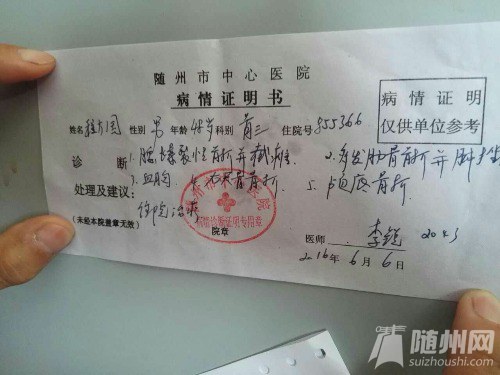 随州市中心医院
病情证明书
病情证明
仅供单位参考
姓名 国 性别 男 年龄 48岁 科别 骨三 住院号 855366
诊断 1. 脑 裂 性骨折并截瘫 2. 多发肋骨骨折并肺
3. 血胸 4. 骨骨折 5. 颅底骨折
处理及建议：
住院治疗
(未经本院盖章无效)
院章
病情诊断证明专用章
医师 李锐 2043
2016年6月6日
随州网
suizhoushi.com